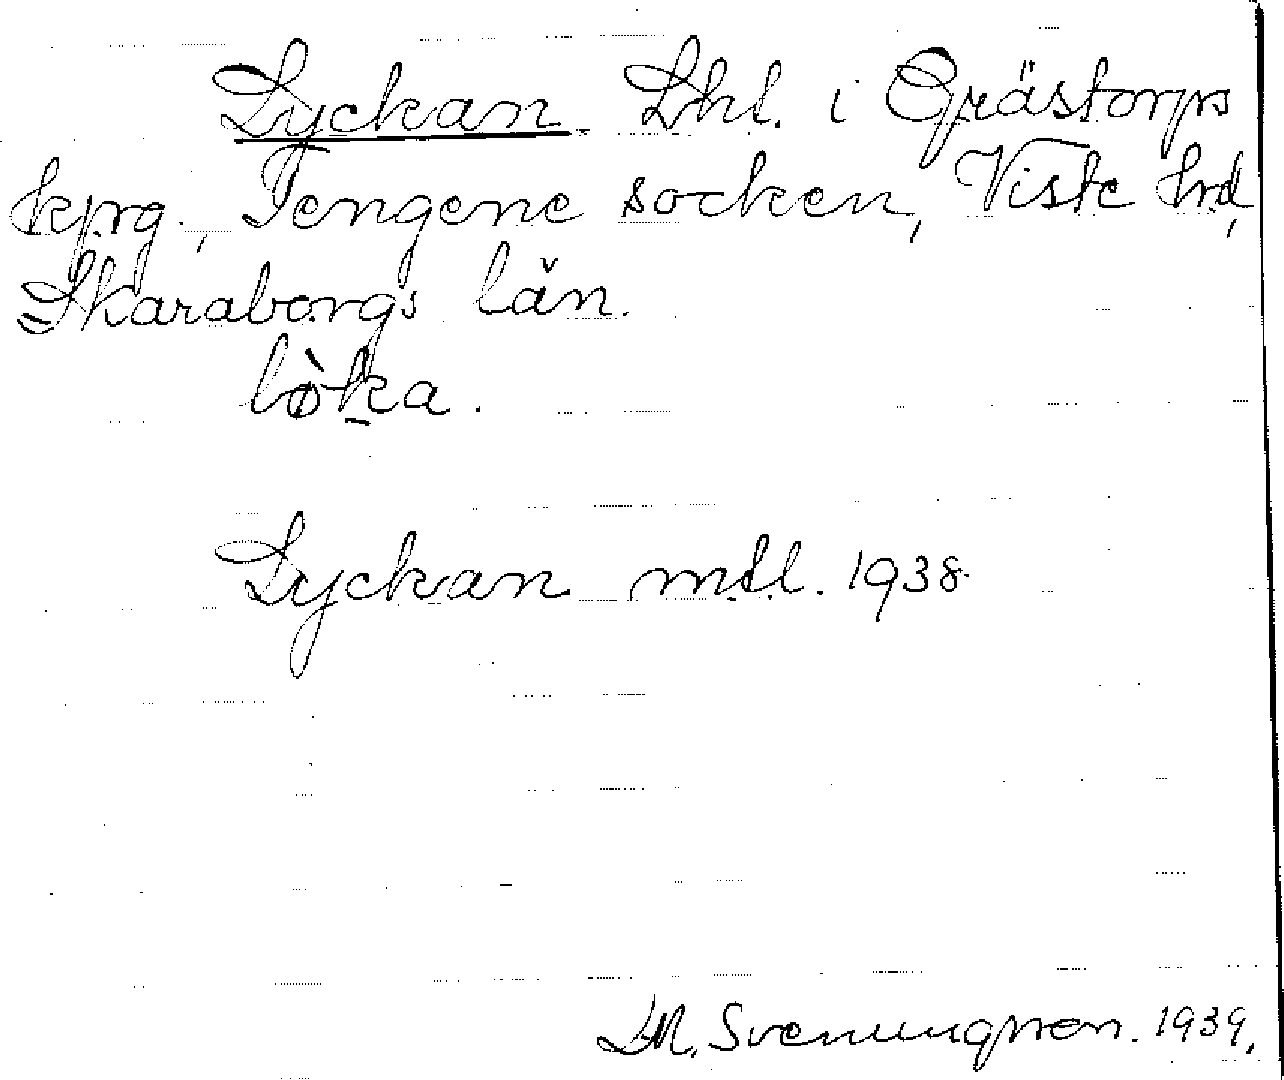 Lyckan Lhl. i Grästorps
kprg., Tengene socken, Viste hrd,
Skaraborgs län.
lø̀ka.
Lyckan mtl. 1938
Svenungsson. 1939.